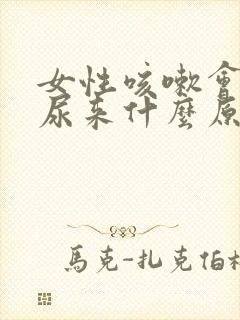 女性咳嗽會
尿来什麼原
馬克-扎克伯格